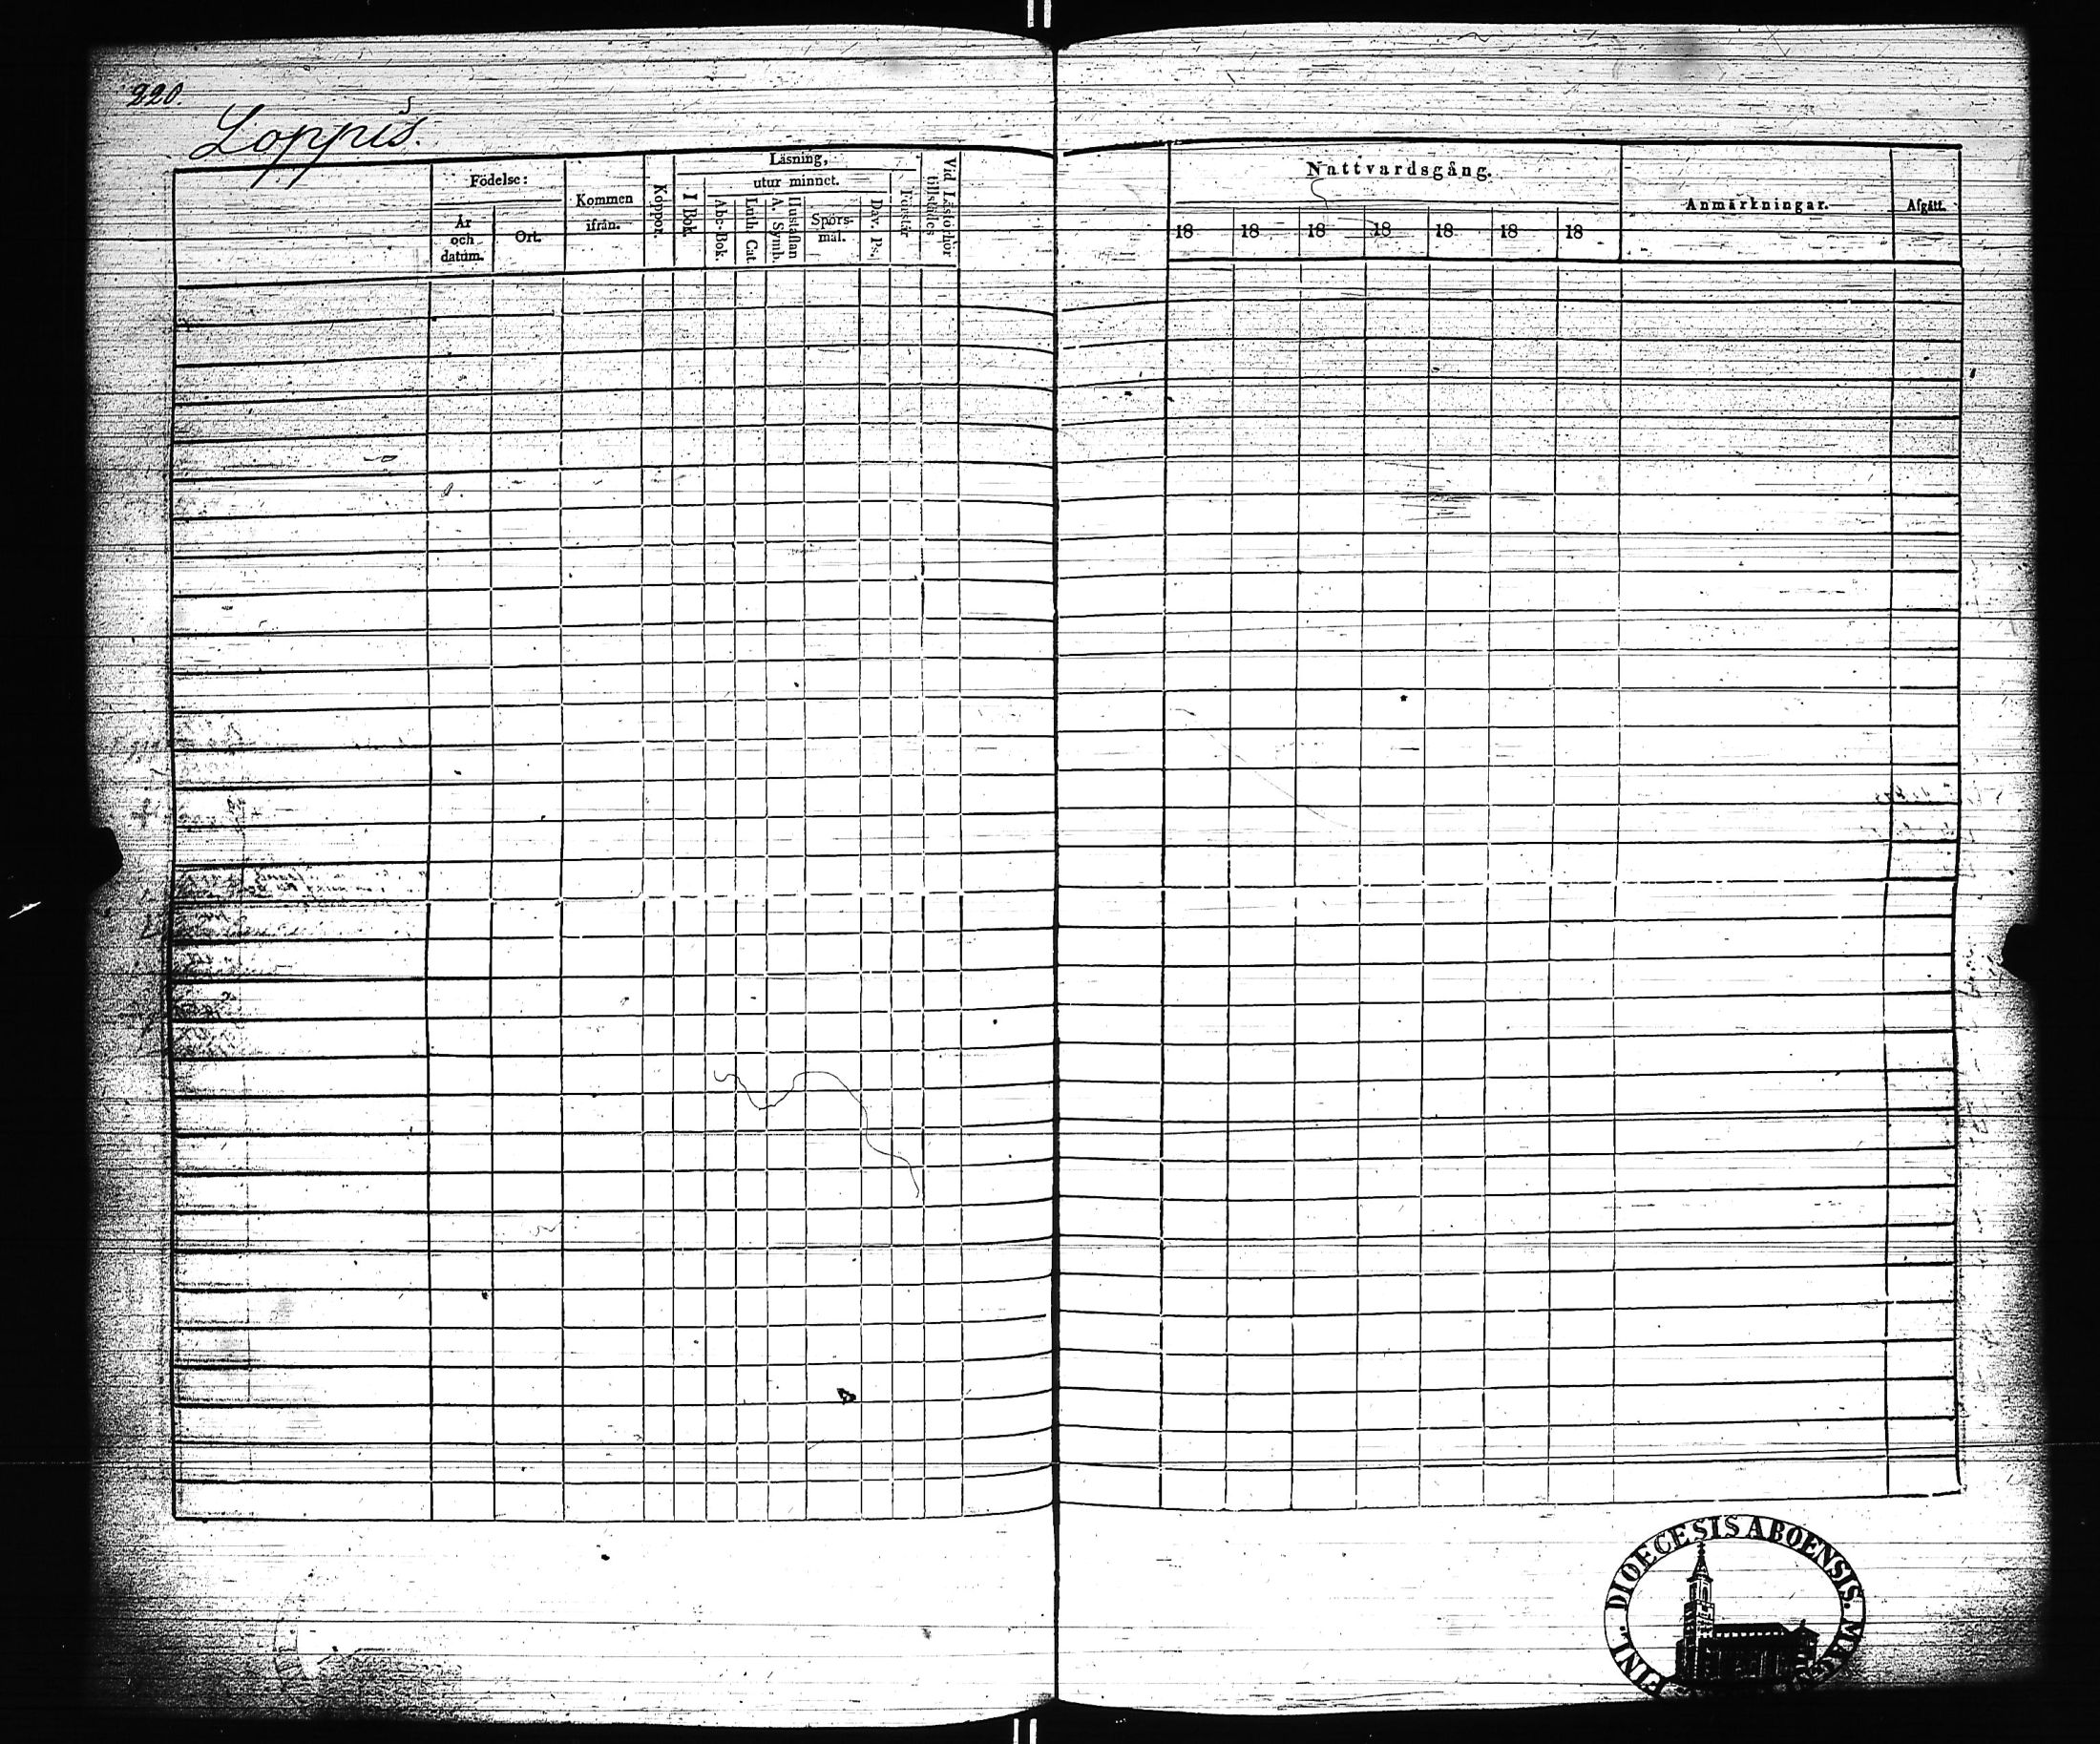 220.
Loppis.
Födelse:
År
och
datum.
Ort.
Kommen
ifrån.
Koppor.
Läsning,
I Bok.
utur minnet.
Abc-Bok.
Luth. Cat.
Hustaflan
A. Symb.
Spörs-
mål.
Dav. Ps.
Förstår
Vid Läsförhör
tillstädes
Nattvardsgång.
18 18 18 18 18 18 18
Anmärkningar.
Afgått.
FINL. DIOECESIS ABOENSIS.